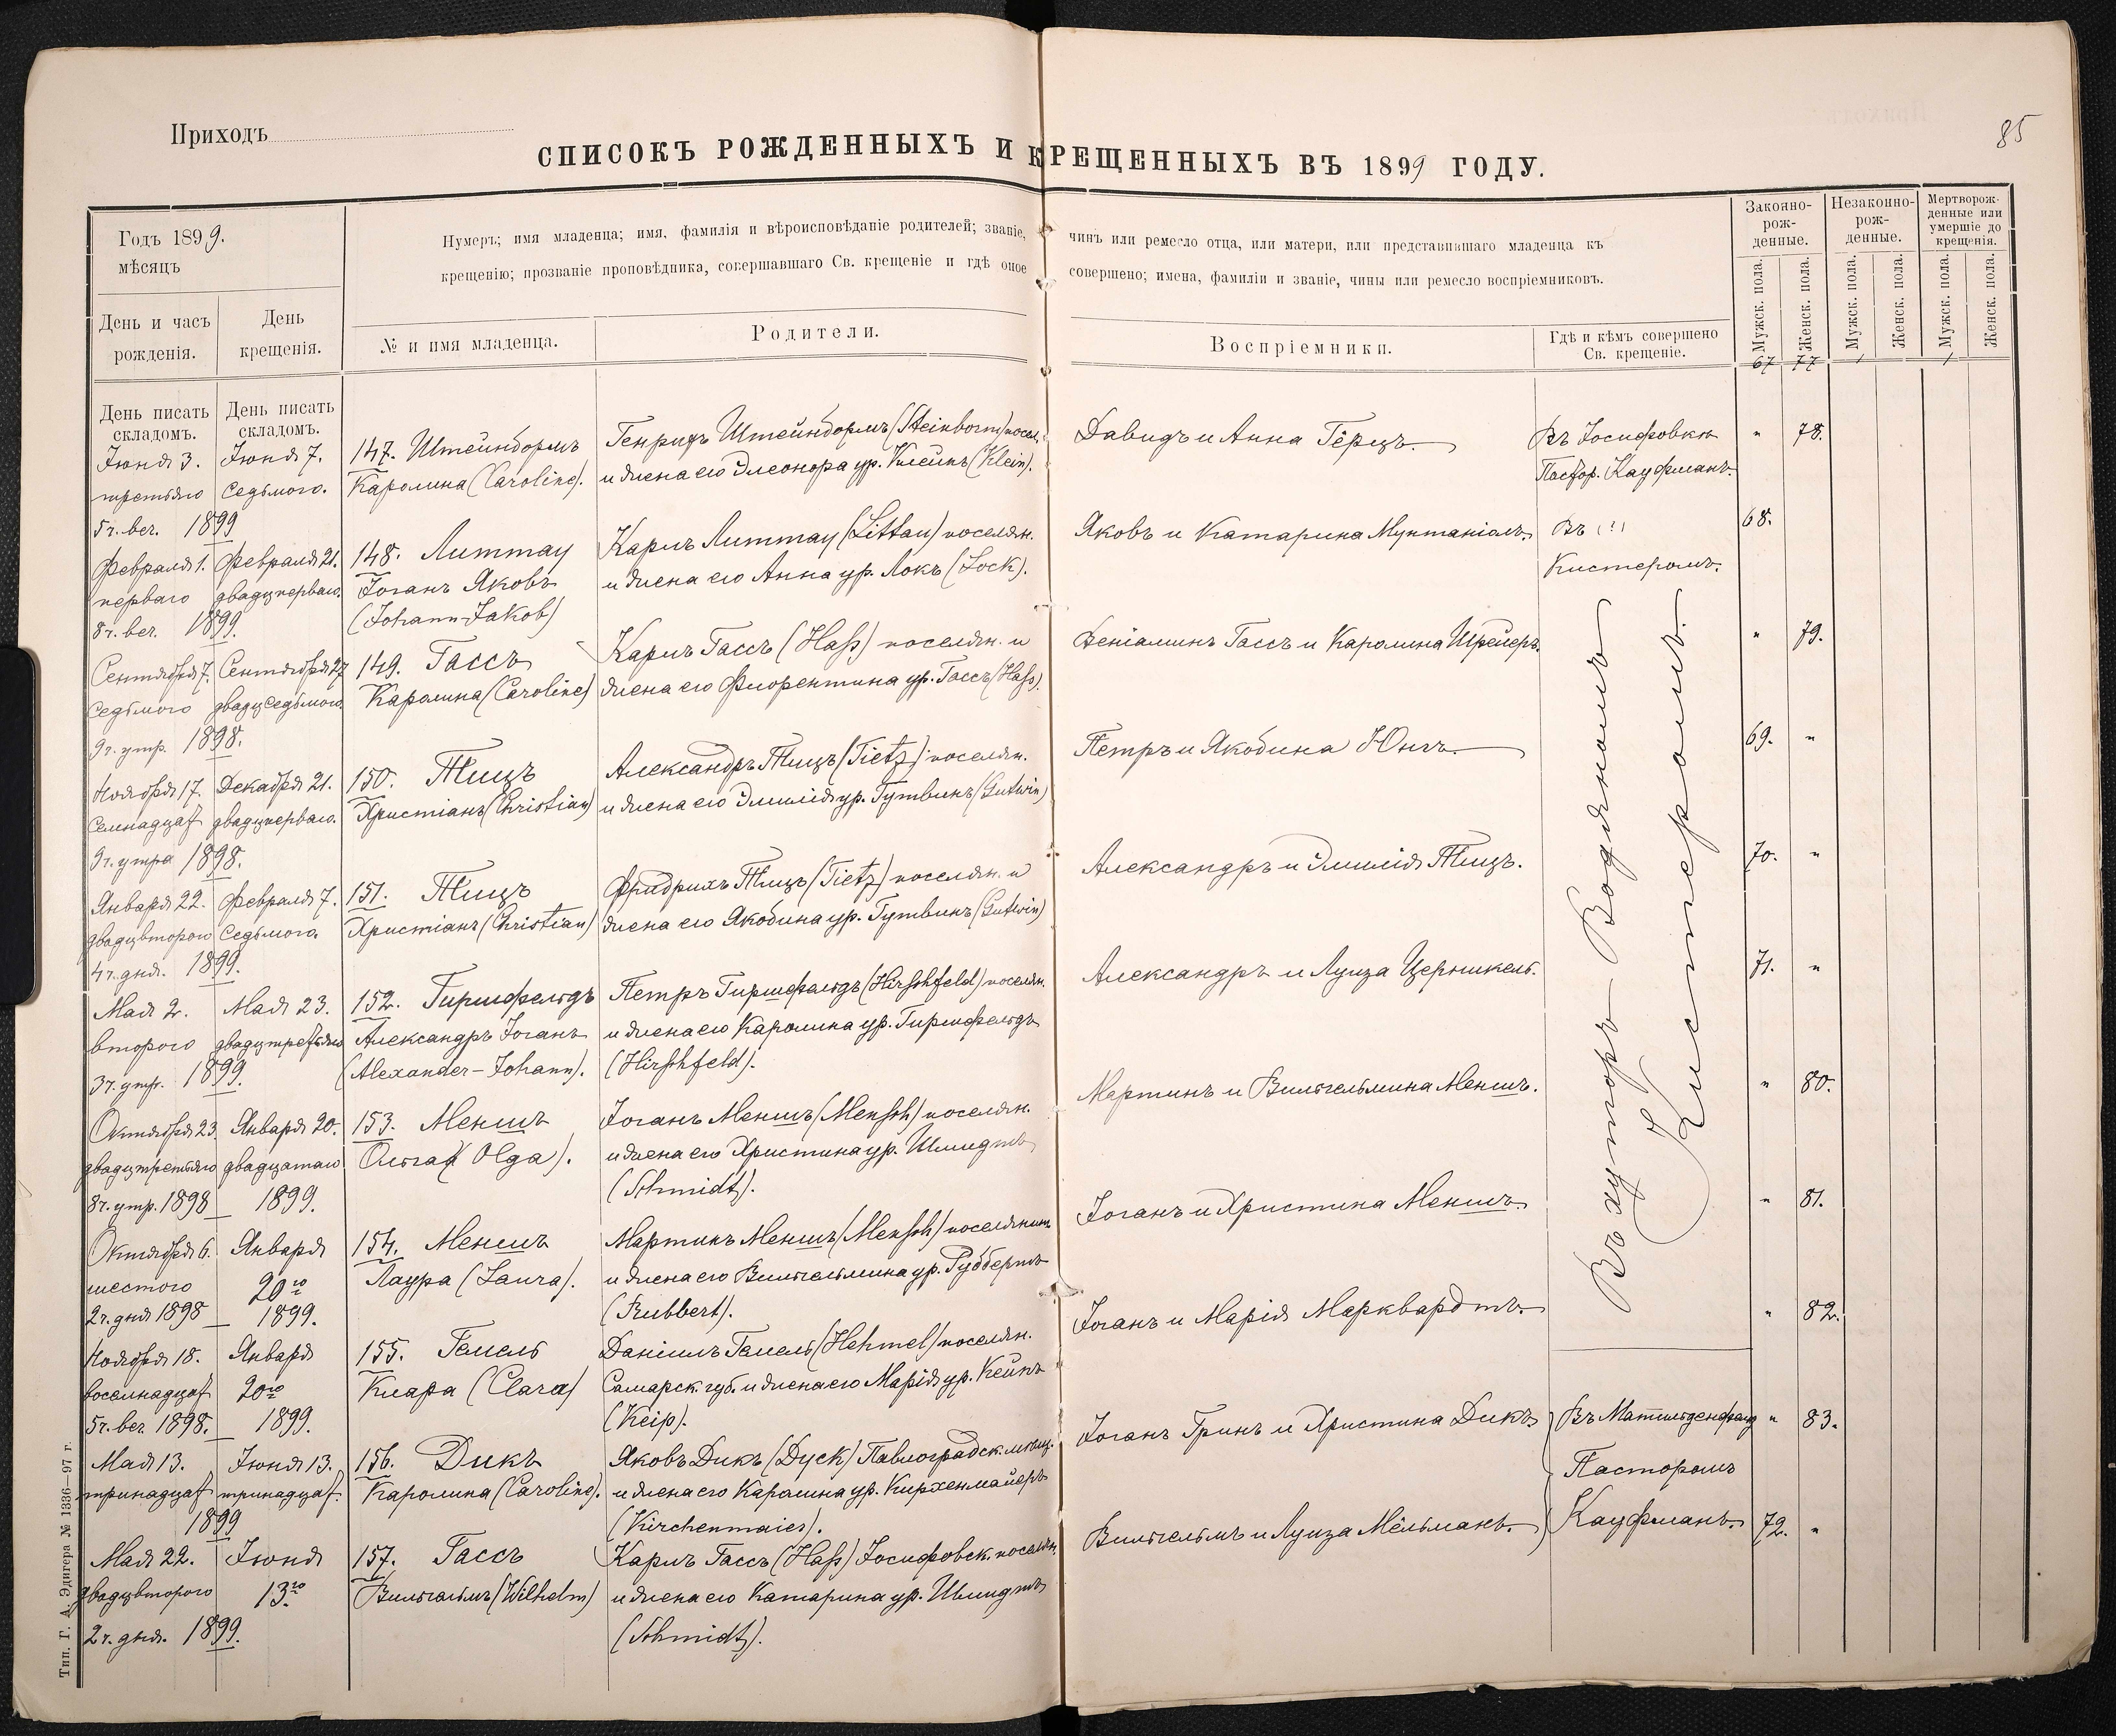 Приходъ
85
СПИСОКЪ РОЖДЕННЫХЪ И КРЕЩЕННЫХЪ ВЪ 1899 ГОДУ.
Годъ 1899.
мѣсяцъ
Нумеръ; имя младенца; имя, фамилія и вѣроисповѣданіе родителей; званіе, чинъ или ремесло отца, или матери, или представившаго младенца къ
крещенію; прозваніе проповѣдника, совершавшаго Св. крещеніе и гдѣ оное совершено; имена, фамиліи и званіе, чины или ремесло воспріемниковъ.
Законно-
рож-
денные.
Незаконно-
рож-
денные.
Мертворож-
денные или
умершіе до
крещенія.
День и часъ
рожденія.
День
крещенія.
№ и имя младенца.
Родители.
Воспріемники.
Гдѣ и кѣмъ совершено
Св. крещеніе.
Мужск. пола.
Женск. пола.
Мужск. пола.
Женск. пола.
Мужск. пола.
Женск. пола.
67 77 1 1
День писать
складомъ.
День писать
складомъ.
Іюня 3. Іюня 7. 147. Штейнбормъ Генрихъ Штейнбормъ (Steinborm) посел. Давидъ и Анна Гёрцъ. Въ Іосифовкѣ " 78.
третьяго седьмого. Каролина (Caroline). и жена его Элеонора ур. Клейнъ (Klein). Пастор. Кауфманъ.
5 ч. веч. 1899
Февраля 1. Февраля 21. 148. Литтау Карлъ Литтау (Littau) поселян. Яковъ и Катарина Въ (?) 68.
перваго двадцперваго. Іоганъ Яковъ и жена его Анна ур. Локъ (Lock). Кистеромъ.
8 ч. веч. 1899. (Johann-Jakob)
Сентября 7. Сентября 27 149. Гассъ Карлъ Гассъ (Haß) поселян. и Веніаминъ Гассъ и Каролина Шрейеръ. " 79.
седьмого двадцседьмого. Каролина (Caroline) жена его Флорентина ур. Гассъ (Haß).
9 ч. утр. 1898.
Ноября 17. Декабря 21. 150. Тицъ Александръ Тицъ (Tietz) поселян. Петръ и Якобина Юнгъ. 69. "
семнадцат двадцперваго. Христіанъ (Christian) и жена его Эмилія ур. Гутвинъ (Gutwin)
9 ч. утра 1898.
Января 22. Февраля 7. 151. Тицъ Фридрихъ Тицъ (Tietz) поселян. и Александръ и Эмилія Тицъ. 70. "
двадцвторого седьмого. Христіанъ (Christian) жена его Якобина ур. Гутвинъ (Gutwin)
4 ч. дня. 1899.
Въ хуторѣ Водяномъ
Кистеромъ.
Мая 2. Мая 23. 152. Гиршфельдъ Петръ Гиршфельдъ (Hirschfeld) поселян. Александръ и Луиза Цершкель. 71. "
второго двадцтретьяго Александръ Іоганъ и жена его Каролина ур. Гиршфельдъ
3 ч. утр. 1899. (Alexander-Johann). (Hirschfeld).
Октября 23 Января 20. 153. Меншъ Іоганъ Меншъ (Mensch) поселян. Мартинъ и Вильгельмина Меншъ. " 80.
двадцтретьяго двадцатаго Ольга (Olga). и жена его Христина ур. Шмидтъ
8 ч. утр. 1898 1899. (Schmidt).
Октября 6. Января 154. Меншъ Мартинъ Меншъ (Mensch) поселянинъ Іоганъ и Христина Меншъ. " 81.
шестого 20го Лаура (Laura). и жена его Вильгельмина ур. Рубберпъ
2 ч. дня 1898 1899. (Rubbert).
Ноября 18. Января 155. Гемель Даніилъ Гемель (Hehmel) поселян. Іоганъ и Марія Марквардтъ. " 82.
восемнадцат 20го Клара (Clara) Самарск. губ. и жена его Марія ур. Кейпъ
5 ч. веч. 1898. 1899. (Keip).
Мая 13. Іюня 13. 156. Дикъ Яковъ Дикъ (Dyck) Павлоградск. мѣщ. Іоганъ Гринъ и Христина Дикъ. Въ Матильденфельд " 83.
тринадцат тринадцат. Каролина (Caroline). и жена его Каролина ур. Кирхенмайеръ Пасторомъ
1899 (Kirchenmaier).
Мая 22. Іюня 157. Гассъ Карлъ Гассъ (Haß) Іосифовск. поселян. Вильгельмъ и Луиза Мёльманъ. Кауфманъ. 72. "
двадцвторого 13го Вильгельмъ (Wilhelm) и жена его Катарина ур. Шмидтъ
2 ч. дня. 1899. (Schmidt).
Тип. Г. А. Эдигера № 1336—97 г.